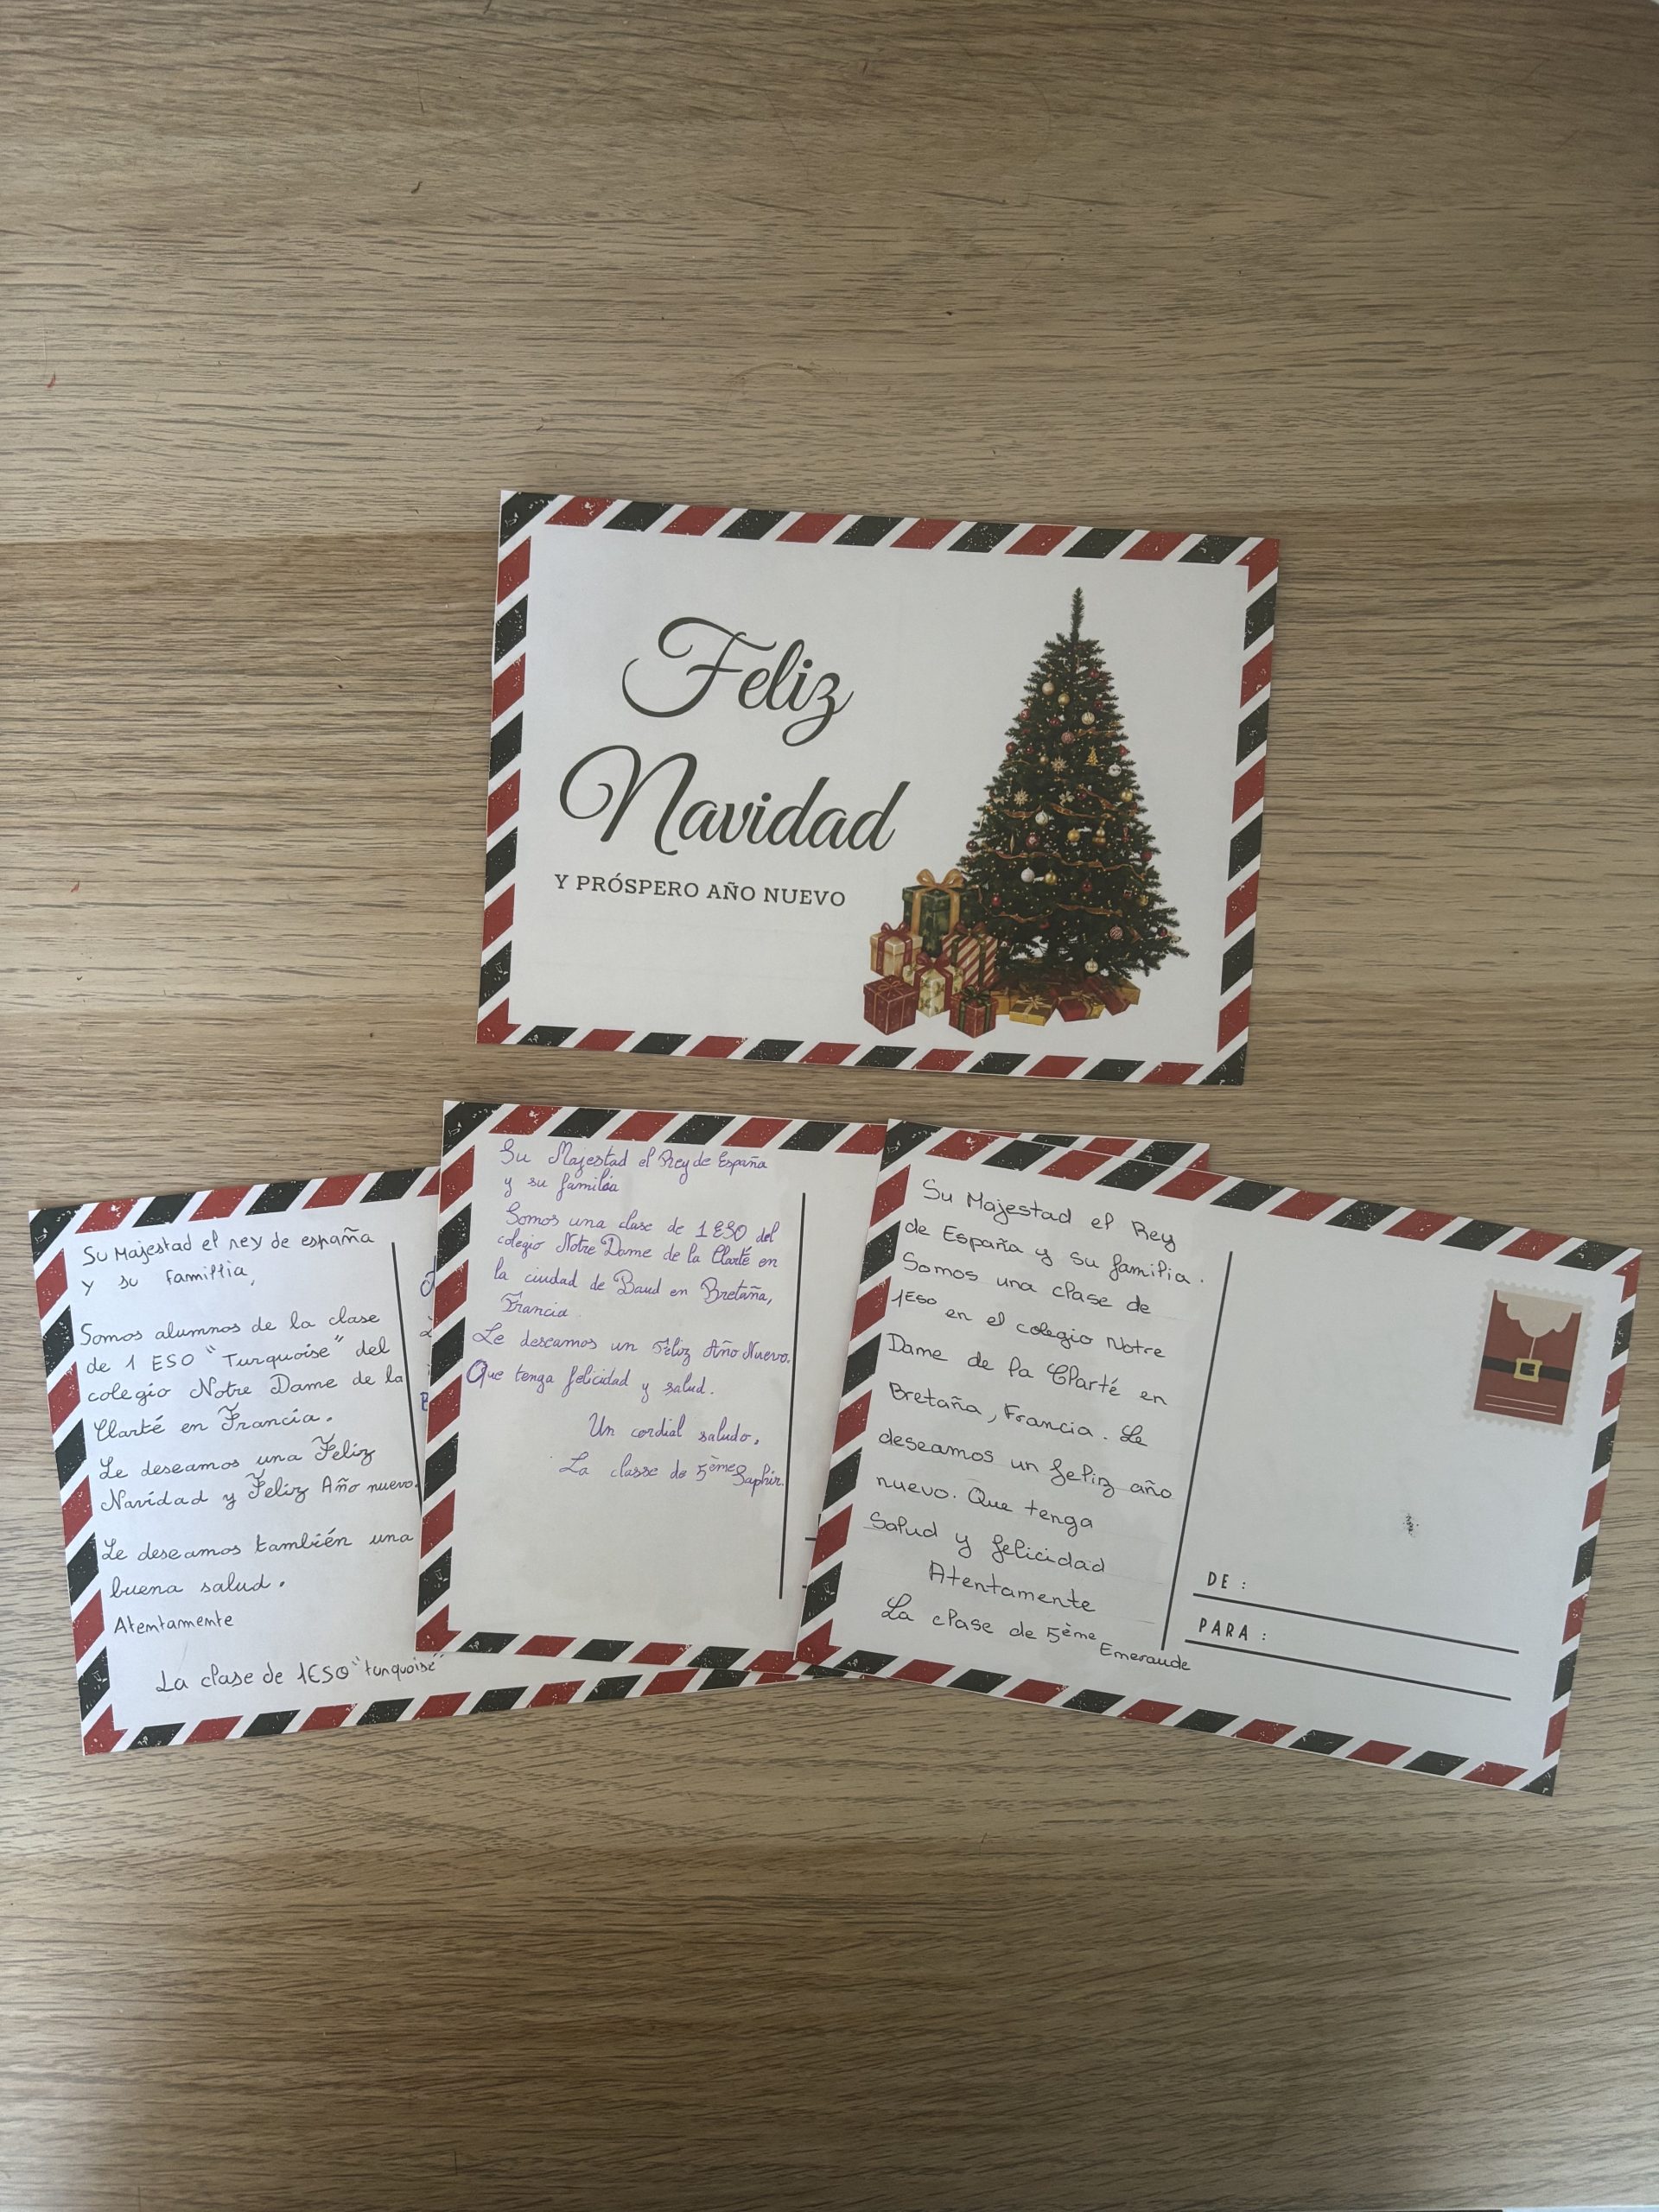 Feliz
Navidad
Y PRÓSPERO AÑO NUEVO
Su Majestad el rey de españa
y su familia,
Somos alumnos de la clase
de 1 ESO "Turquoise" del
colegio Notre Dame de la
Clarté en Francia.
Le deseamos una Feliz
Navidad y Feliz Año nuevo.
Le deseamos también una
buena salud.
Atentamente
La clase de 1ESO "turquoise"
Su Majestad el Rey de España
y su familia
Somos una clase de 1 ESO del
colegio Notre Dame de la Clarté en
la ciudad de Baud en Bretaña,
Francia.
Le deseamos un Feliz Año Nuevo.
Que tenga felicidad y salud.
Un cordial saludo,
La classe de 5ème Saphir.
Su Majestad el Rey
de España y su familia.
Somos una clase de
1ESO en el colegio Notre
Dame de la Clarté en
Bretaña, Francia. Le
deseamos un feliz año
nuevo. Que tenga
Salud y felicidad
Atentamente
La clase de 5ème
Emeraude
DE :
PARA :